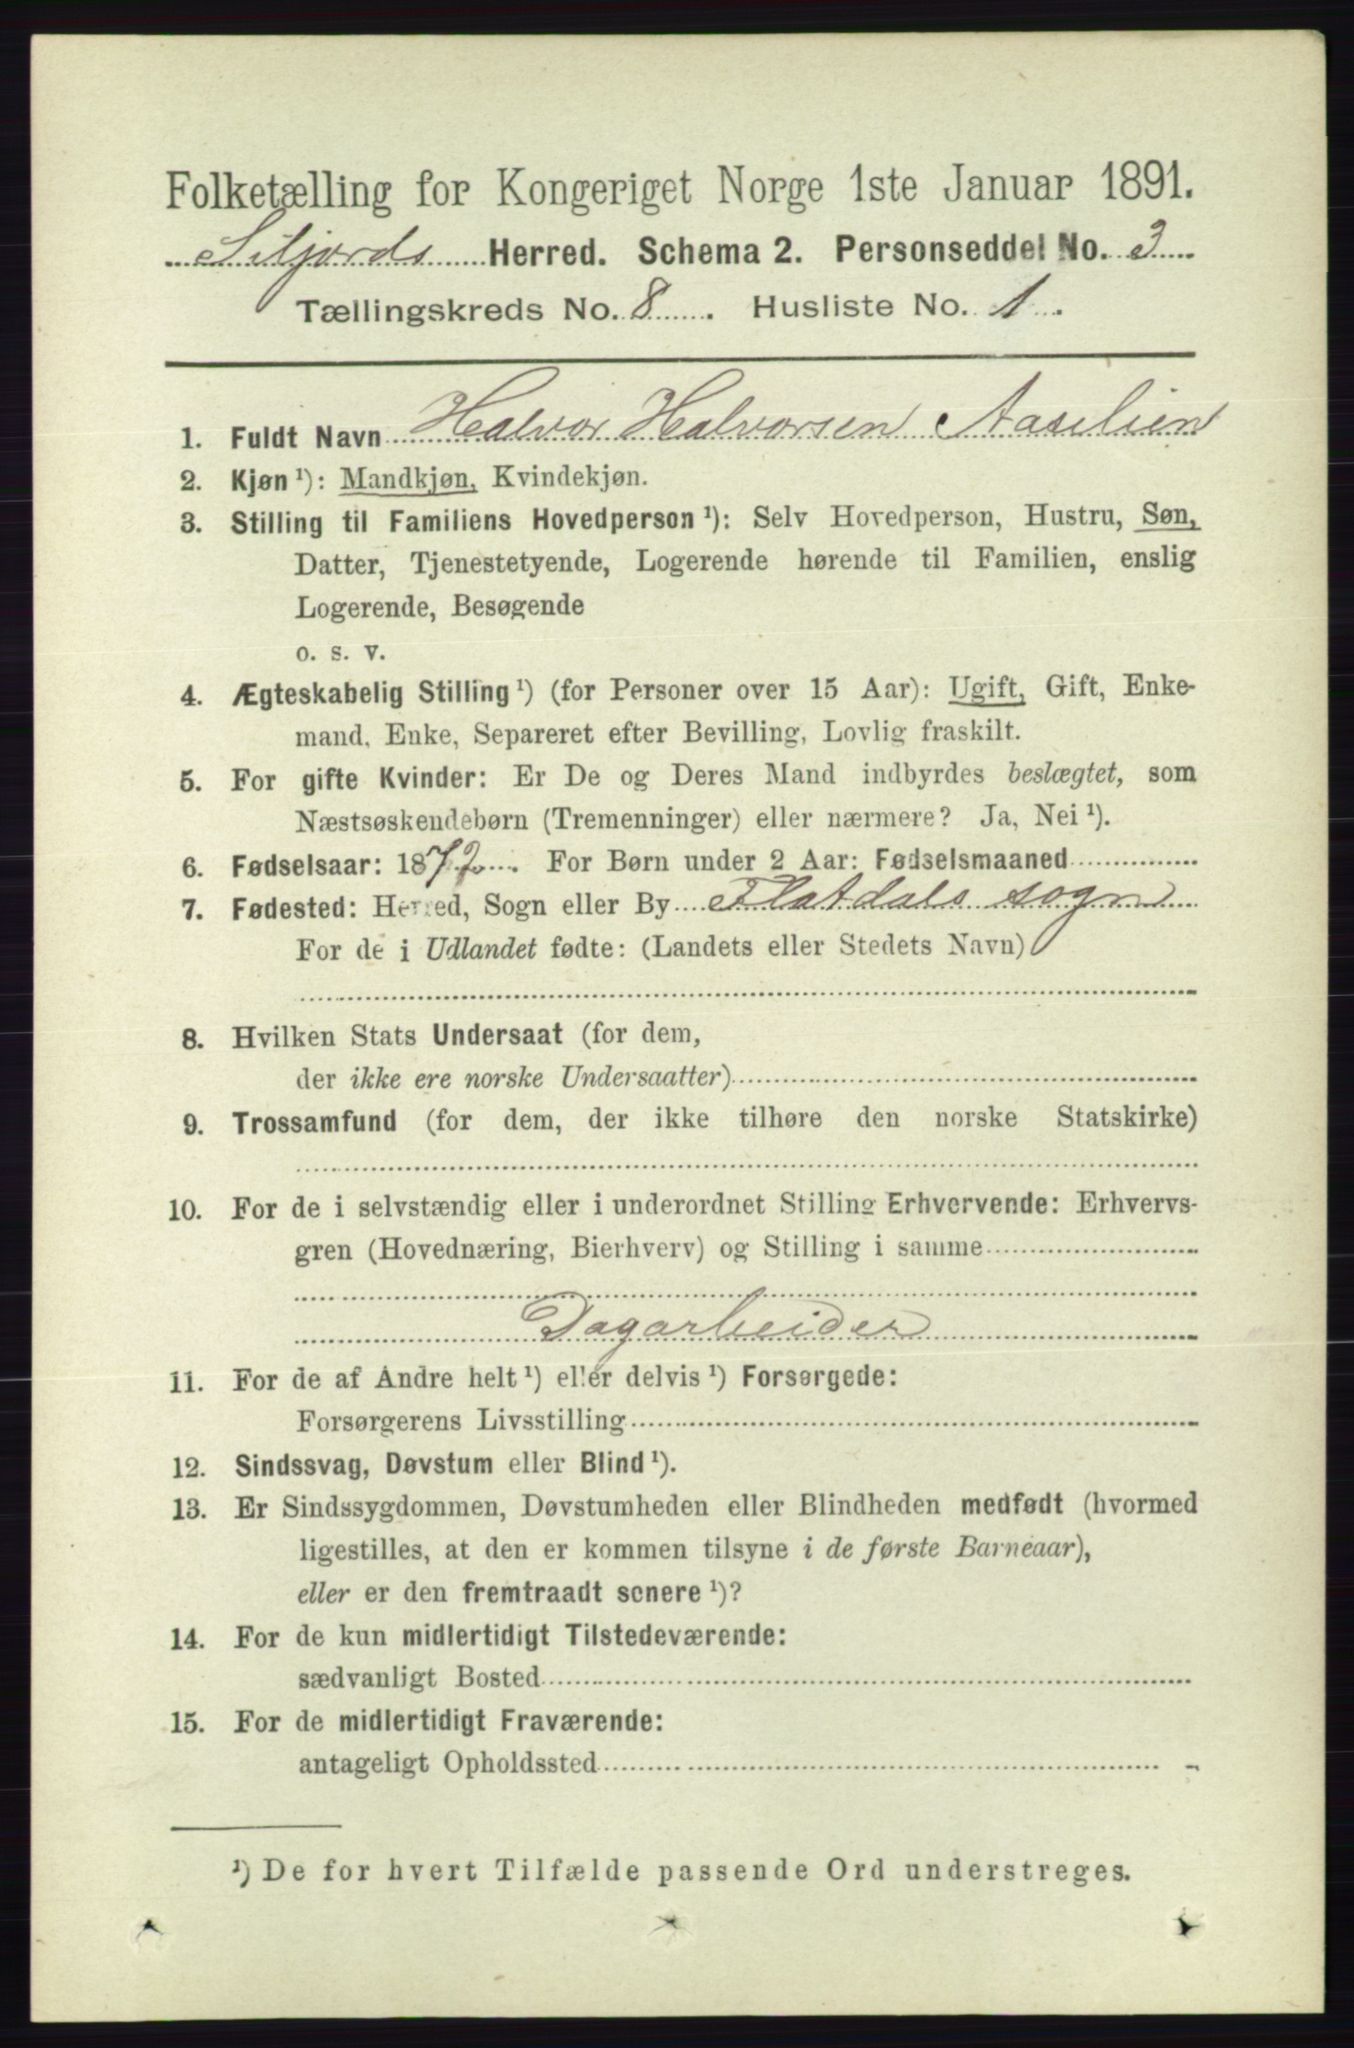 Folketælling for Kongeriget Norge 1ste Januar 1891.
Siljords Herred. Schema 2. Personseddel No. 3
Tællingskreds No. 8. Husliste No. 1.
1. Fuldt Navn Halvor Halvorsen Aaselien
2. Kjøn¹): Mandkjøn, Kvindekjøn.
3. Stilling til Familiens Hovedperson¹): Selv Hovedperson, Hustru, Søn,
Datter, Tjenestetyende, Logerende hørende til Familien, enslig
Logerende, Besøgende
o. s. v.
4. Ægteskabelig Stilling¹) (for Personer over 15 Aar): Ugift, Gift, Enke-
mand, Enke, Separeret efter Bevilling, Lovlig fraskilt.
5. For gifte Kvinder: Er De og Deres Mand indbyrdes beslægtet, som
Næstsøskendebørn (Tremenninger) eller nærmere? Ja, Nei¹).
6. Fødselsaar: 1872. For Børn under 2 Aar: Fødselsmaaned
7. Fødested: Herred, Sogn eller By Flatdals sogn
For de i Udlandet fødte: (Landets eller Stedets Navn)
8. Hvilken Stats Undersaat (for dem,
der ikke ere norske Undersaatter)
9. Trossamfund (for dem, der ikke tilhøre den norske Statskirke)
10. For de i selvstændig eller i underordnet Stilling Erhvervende: Erhvervs-
gren (Hovednæring, Bierhverv) og Stilling i samme
Dagarbeider
11. For de af Andre helt¹) eller delvis¹) Forsørgede:
Forsørgerens Livsstilling
12. Sindssvag, Døvstum eller Blind¹).
13. Er Sindssygdommen, Døvstumheden eller Blindheden medfødt (hvormed
ligestilles, at den er kommen tilsyne i de første Barneaar),
eller er den fremtraadt senere¹)?
14. For de kun midlertidigt Tilstedeværende:
sædvanligt Bosted
15. For de midlertidigt Fraværende:
antageligt Opholdssted
¹) De for hvert Tilfælde passende Ord understreges.